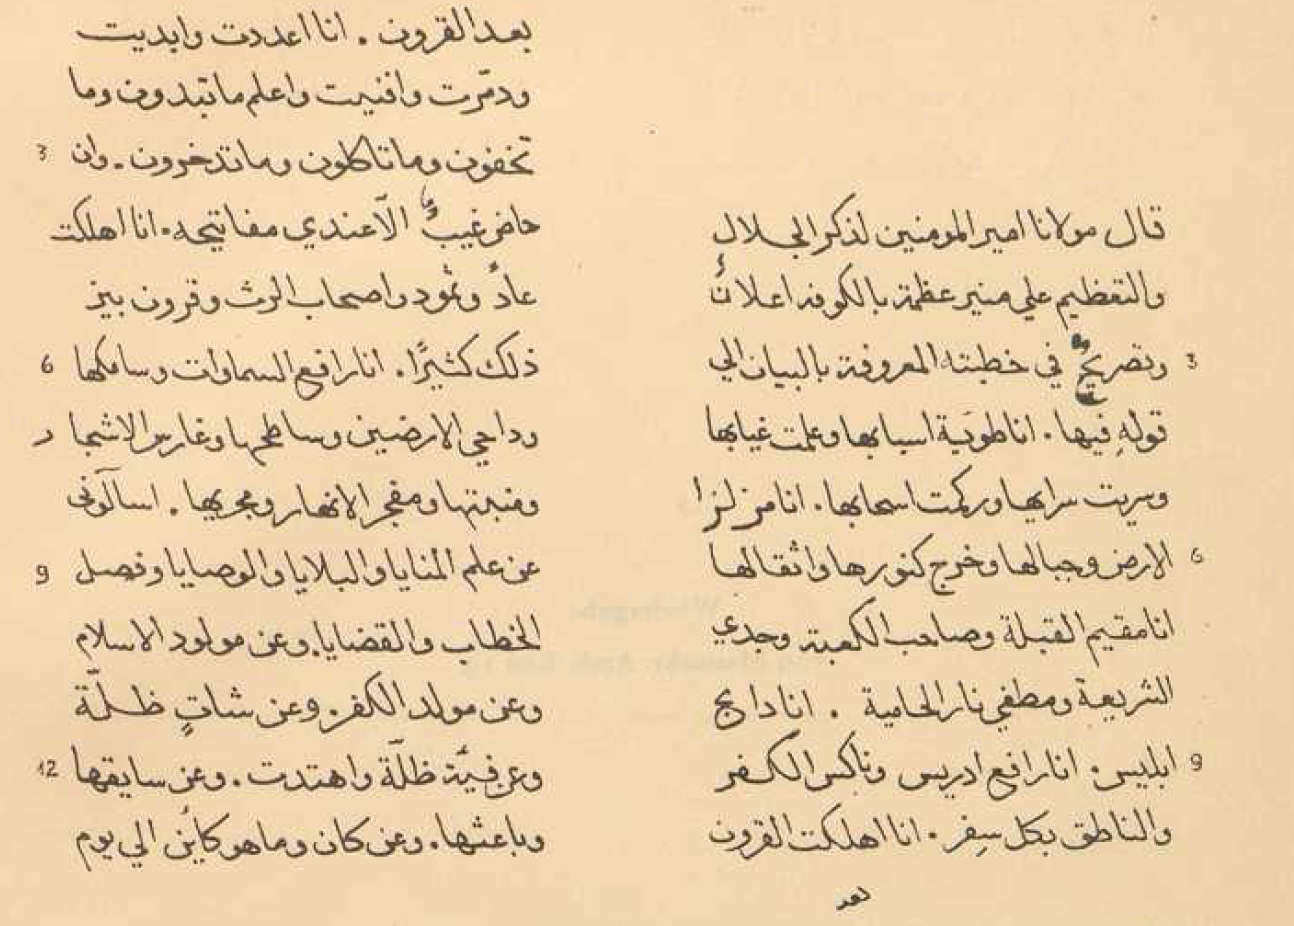 قال مولانا امير المومنين لذكر الجلال
والتعظيم علي منبر عظمة بالكوفه اعلانٌ
3 وتصريحٌ في خطبته المعروفة بالبيان الي
قولهِ فيها . انا طويَة اسبابها وعلمت غيابها
وسريت سرابها وركمت اسحابها . انا مزلزل
6 الارض وجبالها وخرج كنورها واثقالها
انا مقيم القبلة وصاحب الكعبة وجدي
الشريعة ومطفي نار الحامية . انا دابح
9 ابليس . انا رافع ادريس وناكس الكفر
والناطق بكل سِفر . انا اهلكت القرون
بعد
بعد القرون . انا اعددت وابديت
ودمّرت وافنيت واعلم ما تبدون وما
3 تخفون وما تاكلون وما تدخرون . وان
حاضر غيبٌ الّا عندي مفاتيحه . انا اهلكت
عادٌ وثمود واصحاب الرث وقرون بين
6 ذلك كثيرًا . انا رافع السماوات وسامكها
وداحي الارضين وساطحها وغارس الاشجار
ومنبتها ومفجر الانهار ومجريها . اسالونى
9 عن علم المنايا والبلايا والوصايا وفصل
الخطاب والقضايا وعن مولود الاسلام
وعن مولد الكفر . وعن شاتٍ ظلّة
12 وعن فيَّة ظلّة واهتدت . وعن سايقها
وباعثها . وعن كان وما هو كاين الي يوم